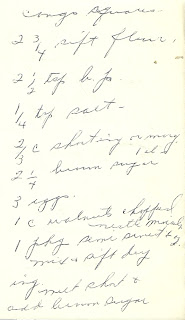 congo squares
2 3/4 sift flour.
2 1/2 tsp b.p.
1/4 tsp salt -
2/3 c shorting or marg.
2 1/4 brown sugar
3 eggs.
1 c walnuts chopped
1 pkg semi sweet
mix & sift dry
ing melt short &
add brown sugar